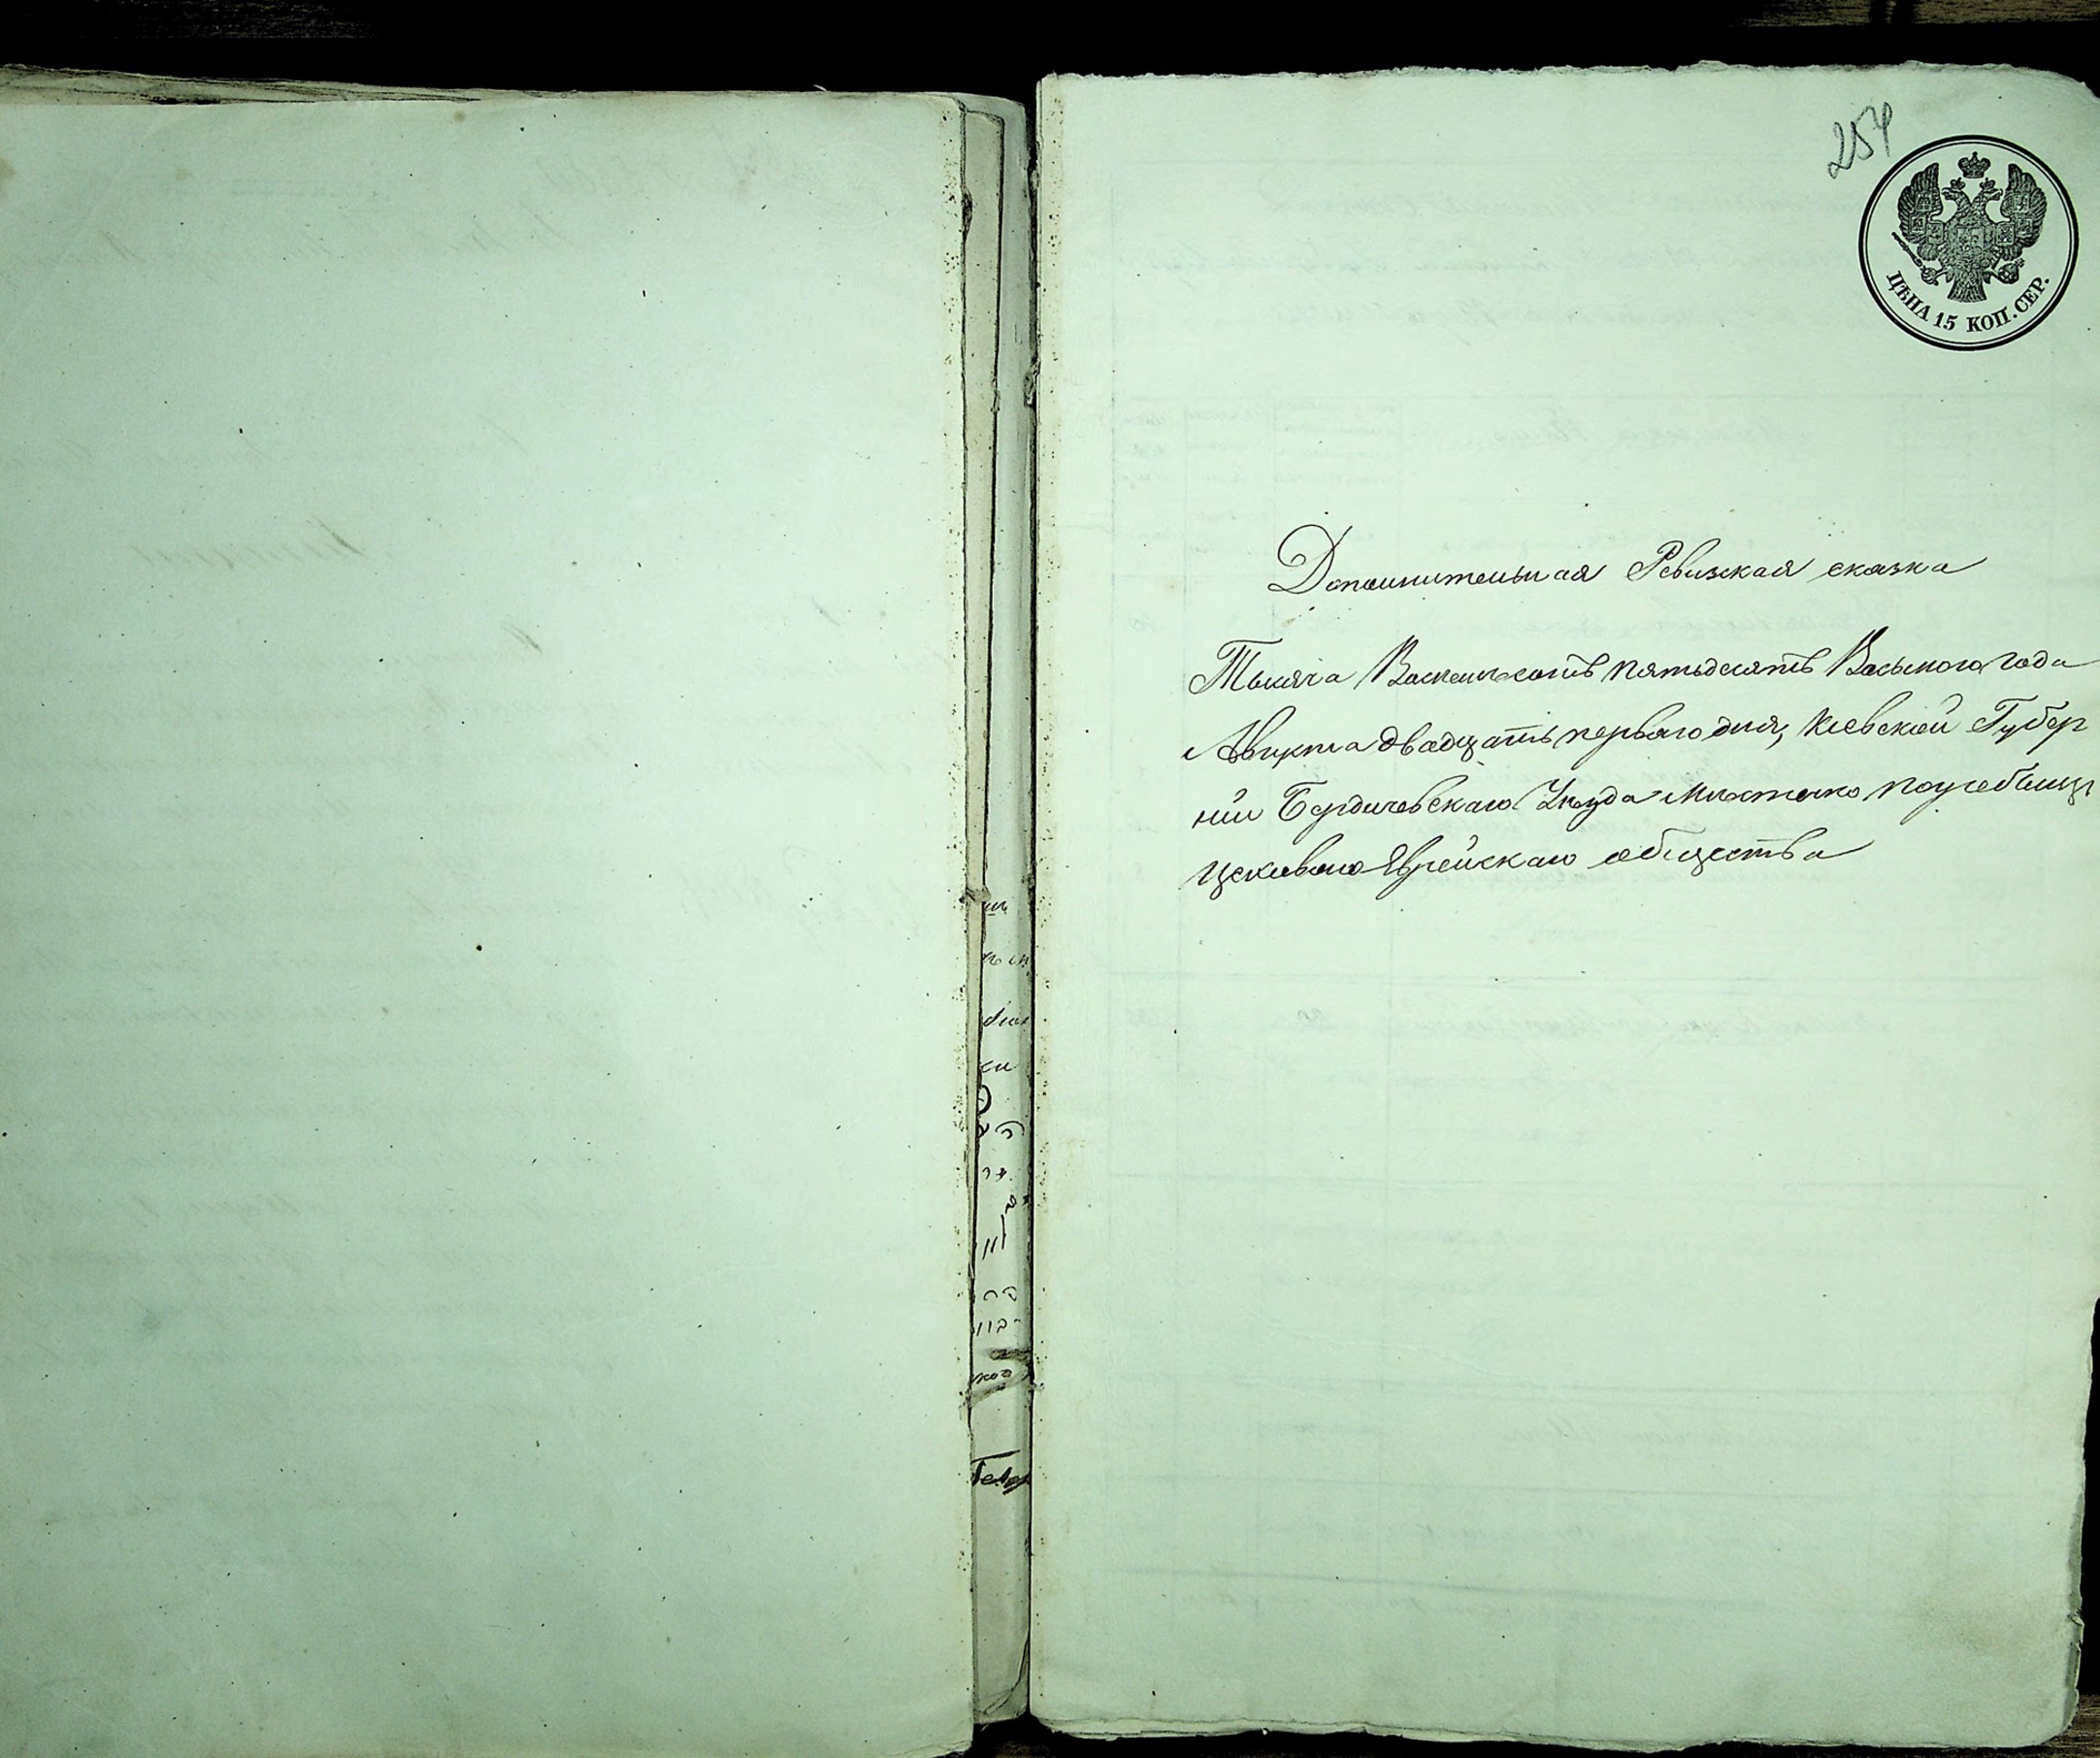 254
ЦѢНА 15 КОП. СЕР.
Дополнительная Ревизская сказка
Тысяча Восемьсотъ пятьдесятъ Восьмого года
Августа двадцать перваго дня, Киевской Губер
нии Бердичевскаго Уезда Местечко погребищ
Еврейскаго общества